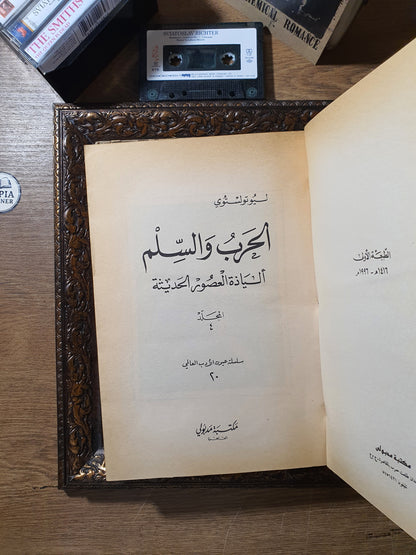 THE SMITHS
SVIATOSLAV RICHTER
CHEMICAL ROMANCE
PIA
RNER
ليو تولستوي
الحَربُ وَالسِّلم
إليَاذة العصُور الحَديثة
المجلد
٤
سلسلة عيون الأدب العالمي
٢٠
مكتبة مدبولي
القاهرة
الطبعَة الأولى
١٤١٦هـ - ١٩٩٦م
مكتبة مدبولي